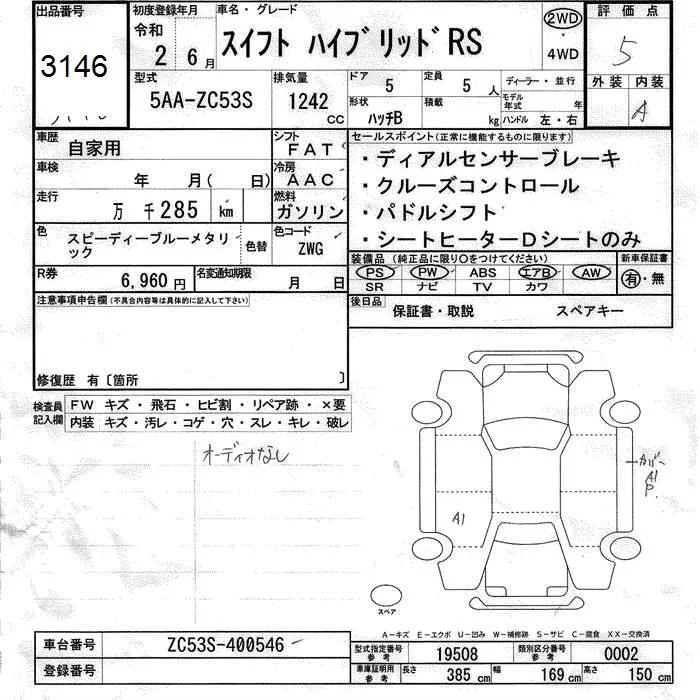 出品番号 初度登録年月 車名・グレード 評価点
3146 令和 2 6月 スイフト ハイブリッドRS 2WD ・ 4WD 5
型式 排気量 ドア 定員 ディーラー・並行 外装 内装
5AA-ZC53S 1242 CC 5 5 人 モデル年式 年 A
形状 ハッチB 積載 kg ハンドル 左・右
車歴 自家用 シフト FAT セールスポイント(正常に機能するものに限ります)
車検 年 月( 日) 冷房 AAC ・ディアルセンサーブレーキ
走行 万 千285 km 燃料 ガソリン ・クルーズコントロール
・パドルシフト
色 スピーディーブルーメタリック 色替 色コード ZWG ・シートヒーターDシートのみ
R券 6,960 円 名変通知期限 月 日 装備品 (純正品に限り〇をつけてください) 新車保証書
PS PW ABS エアB AW 有・無
SR ナビ TV カワ
注意事項申告欄(不具合内容等は具体的に記入して下さい) 後日品 保証書・取説 スペアキー
修復歴 有〔箇所 〕
検査員記入欄 FW キズ・飛石・ヒビ割・リペア跡・×要
内装 キズ・汚レ・コゲ・穴・スレ・キレ・破レ
オーディオなし
カバー
A1
P.
A1
スペア
A-キズ E-エクボ U-凹み W-補修跡 S-サビ C-腐食 XX-交換済
車台番号 ZC53S-400546 型式指定番号 参考 19508 類別区分番号 参考 0002
登録番号 車庫証明用 参考 長さ 385 cm 幅 169 cm 高さ 150 cm